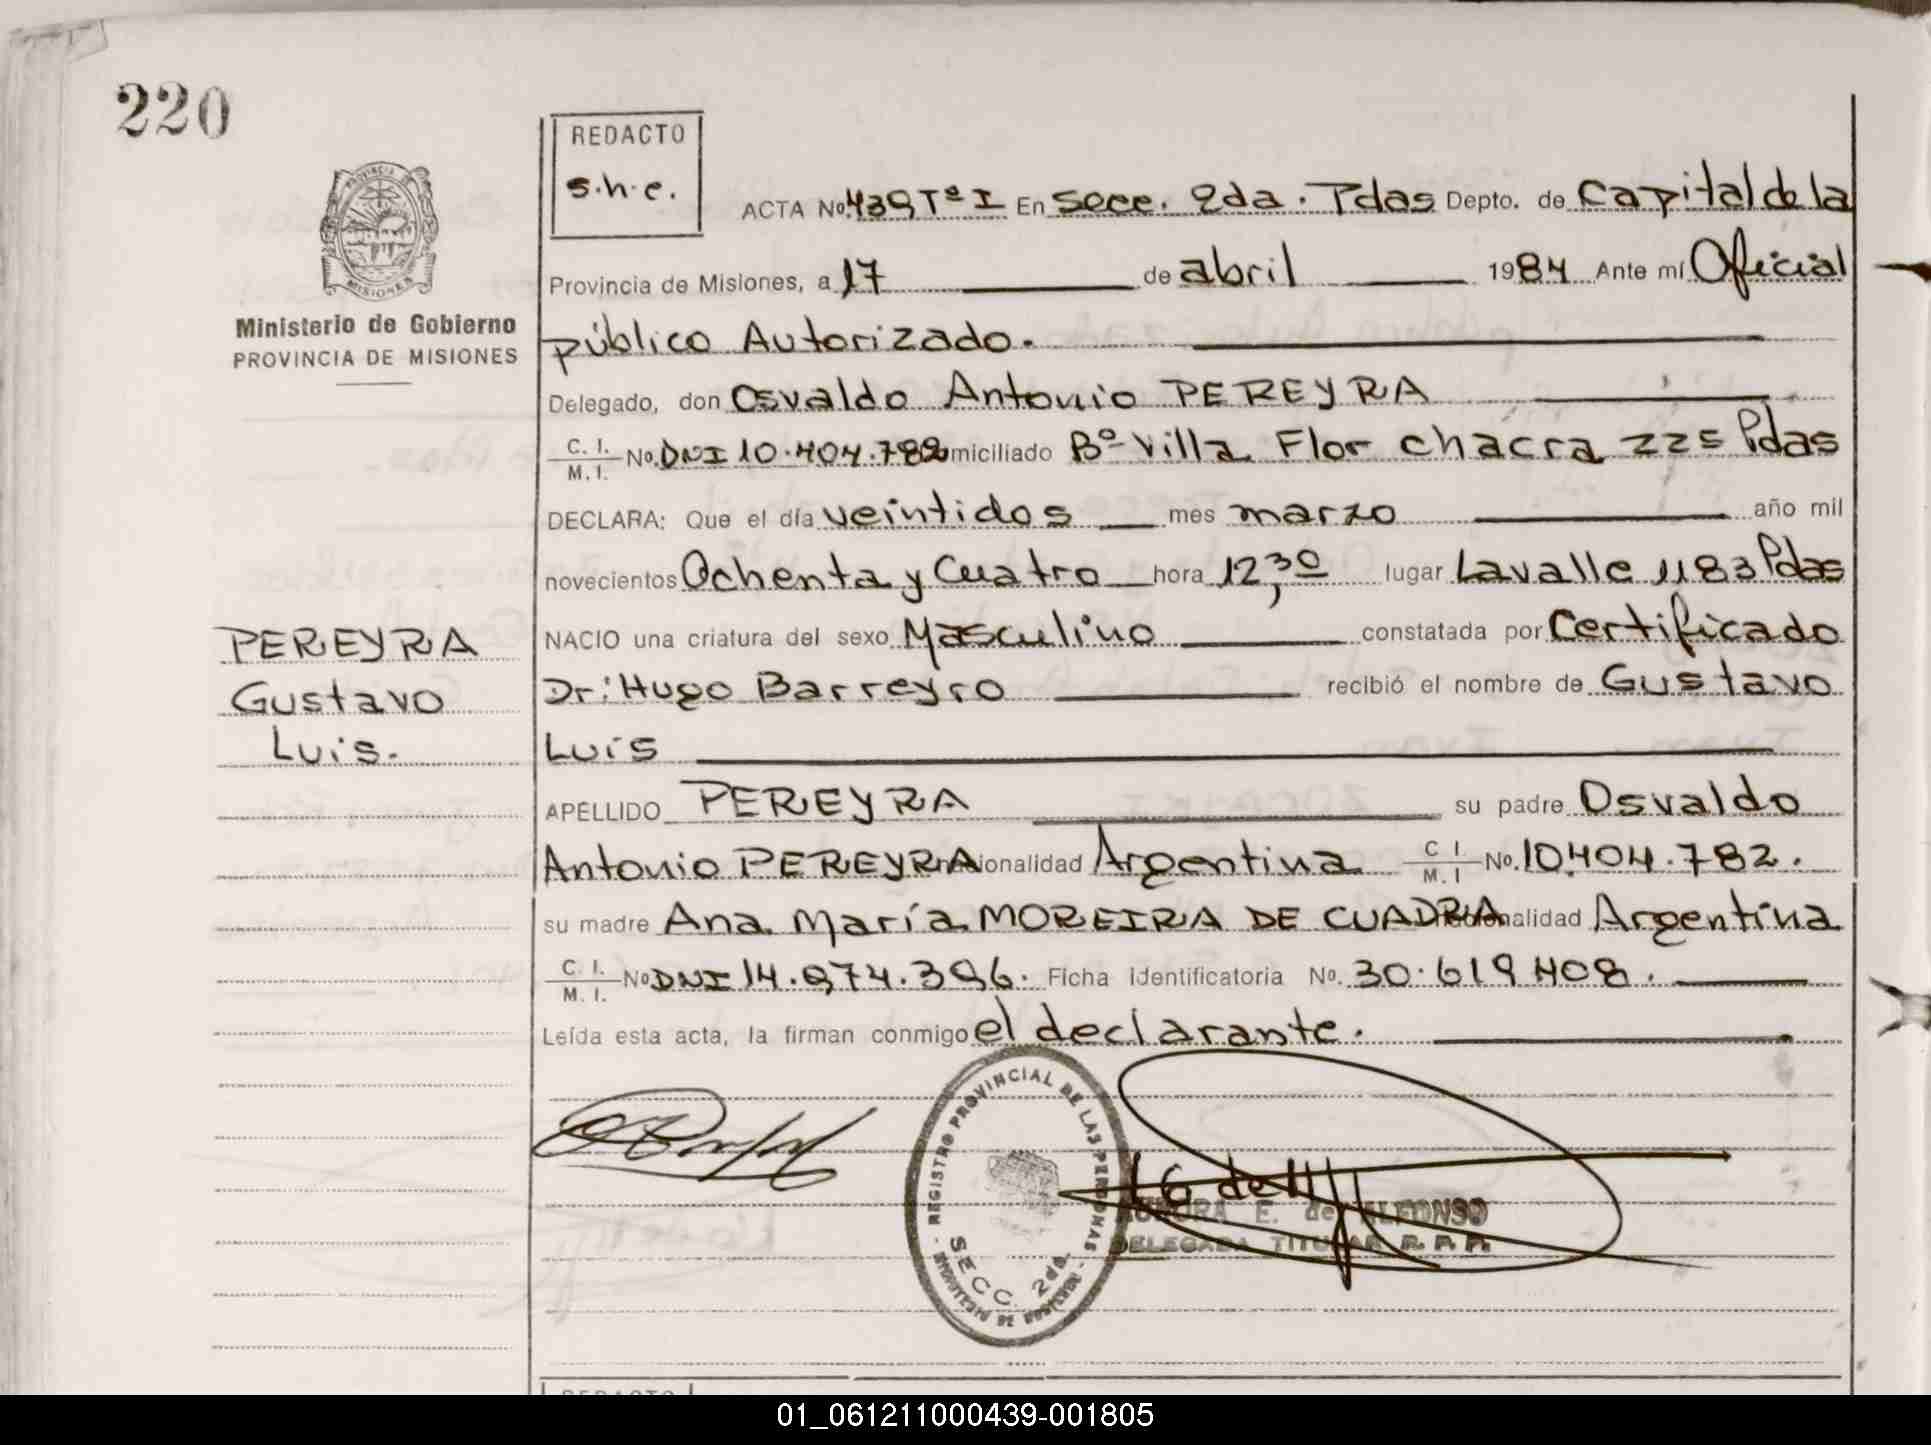 220
REDACTO
s.h.e.
ACTA No. 439 Tº I En Secc. 2da. Pdas Depto. de Capital de la
Provincia de Misiones, a 17 de abril 1984 Ante mí Oficial
público Autorizado.
Ministerio de Gobierno
PROVINCIA DE MISIONES
Delegado, don Osvaldo Antonio PEREYRA
C. I.
M. I. No. DNI 10.404.782 miciliado Bº Villa Flor chacra 225 Pdas
DECLARA: Que el día veintidos mes marzo año mil
novecientos Ochenta y Cuatro hora 12,30 lugar Lavalle 1183 Pdas
NACIO una criatura del sexo Masculino constatada por Certificado
Dr: Hugo Barreyro recibió el nombre de Gustavo
Luis
PEREYRA
Gustavo
Luis.
APELLIDO PEREYRA su padre Osvaldo
Antonio PEREYRA nacionalidad Argentina C I. M. I No. 10.404.782.
su madre Ana María MOREIRA DE CUADRA nacionalidad Argentina
C. I.
M. I. No DNI 14.974.396. Ficha identificatoria No. 30.619408.
Leída esta acta, la firman conmigo el declarante.
REGISTRO PROVINCIAL DE LAS PERSONAS
SECC. 2da.
E. de ALFONSO
DELEGADA TITULAR R. P. P.
REDACTO
01_061211000439-001805